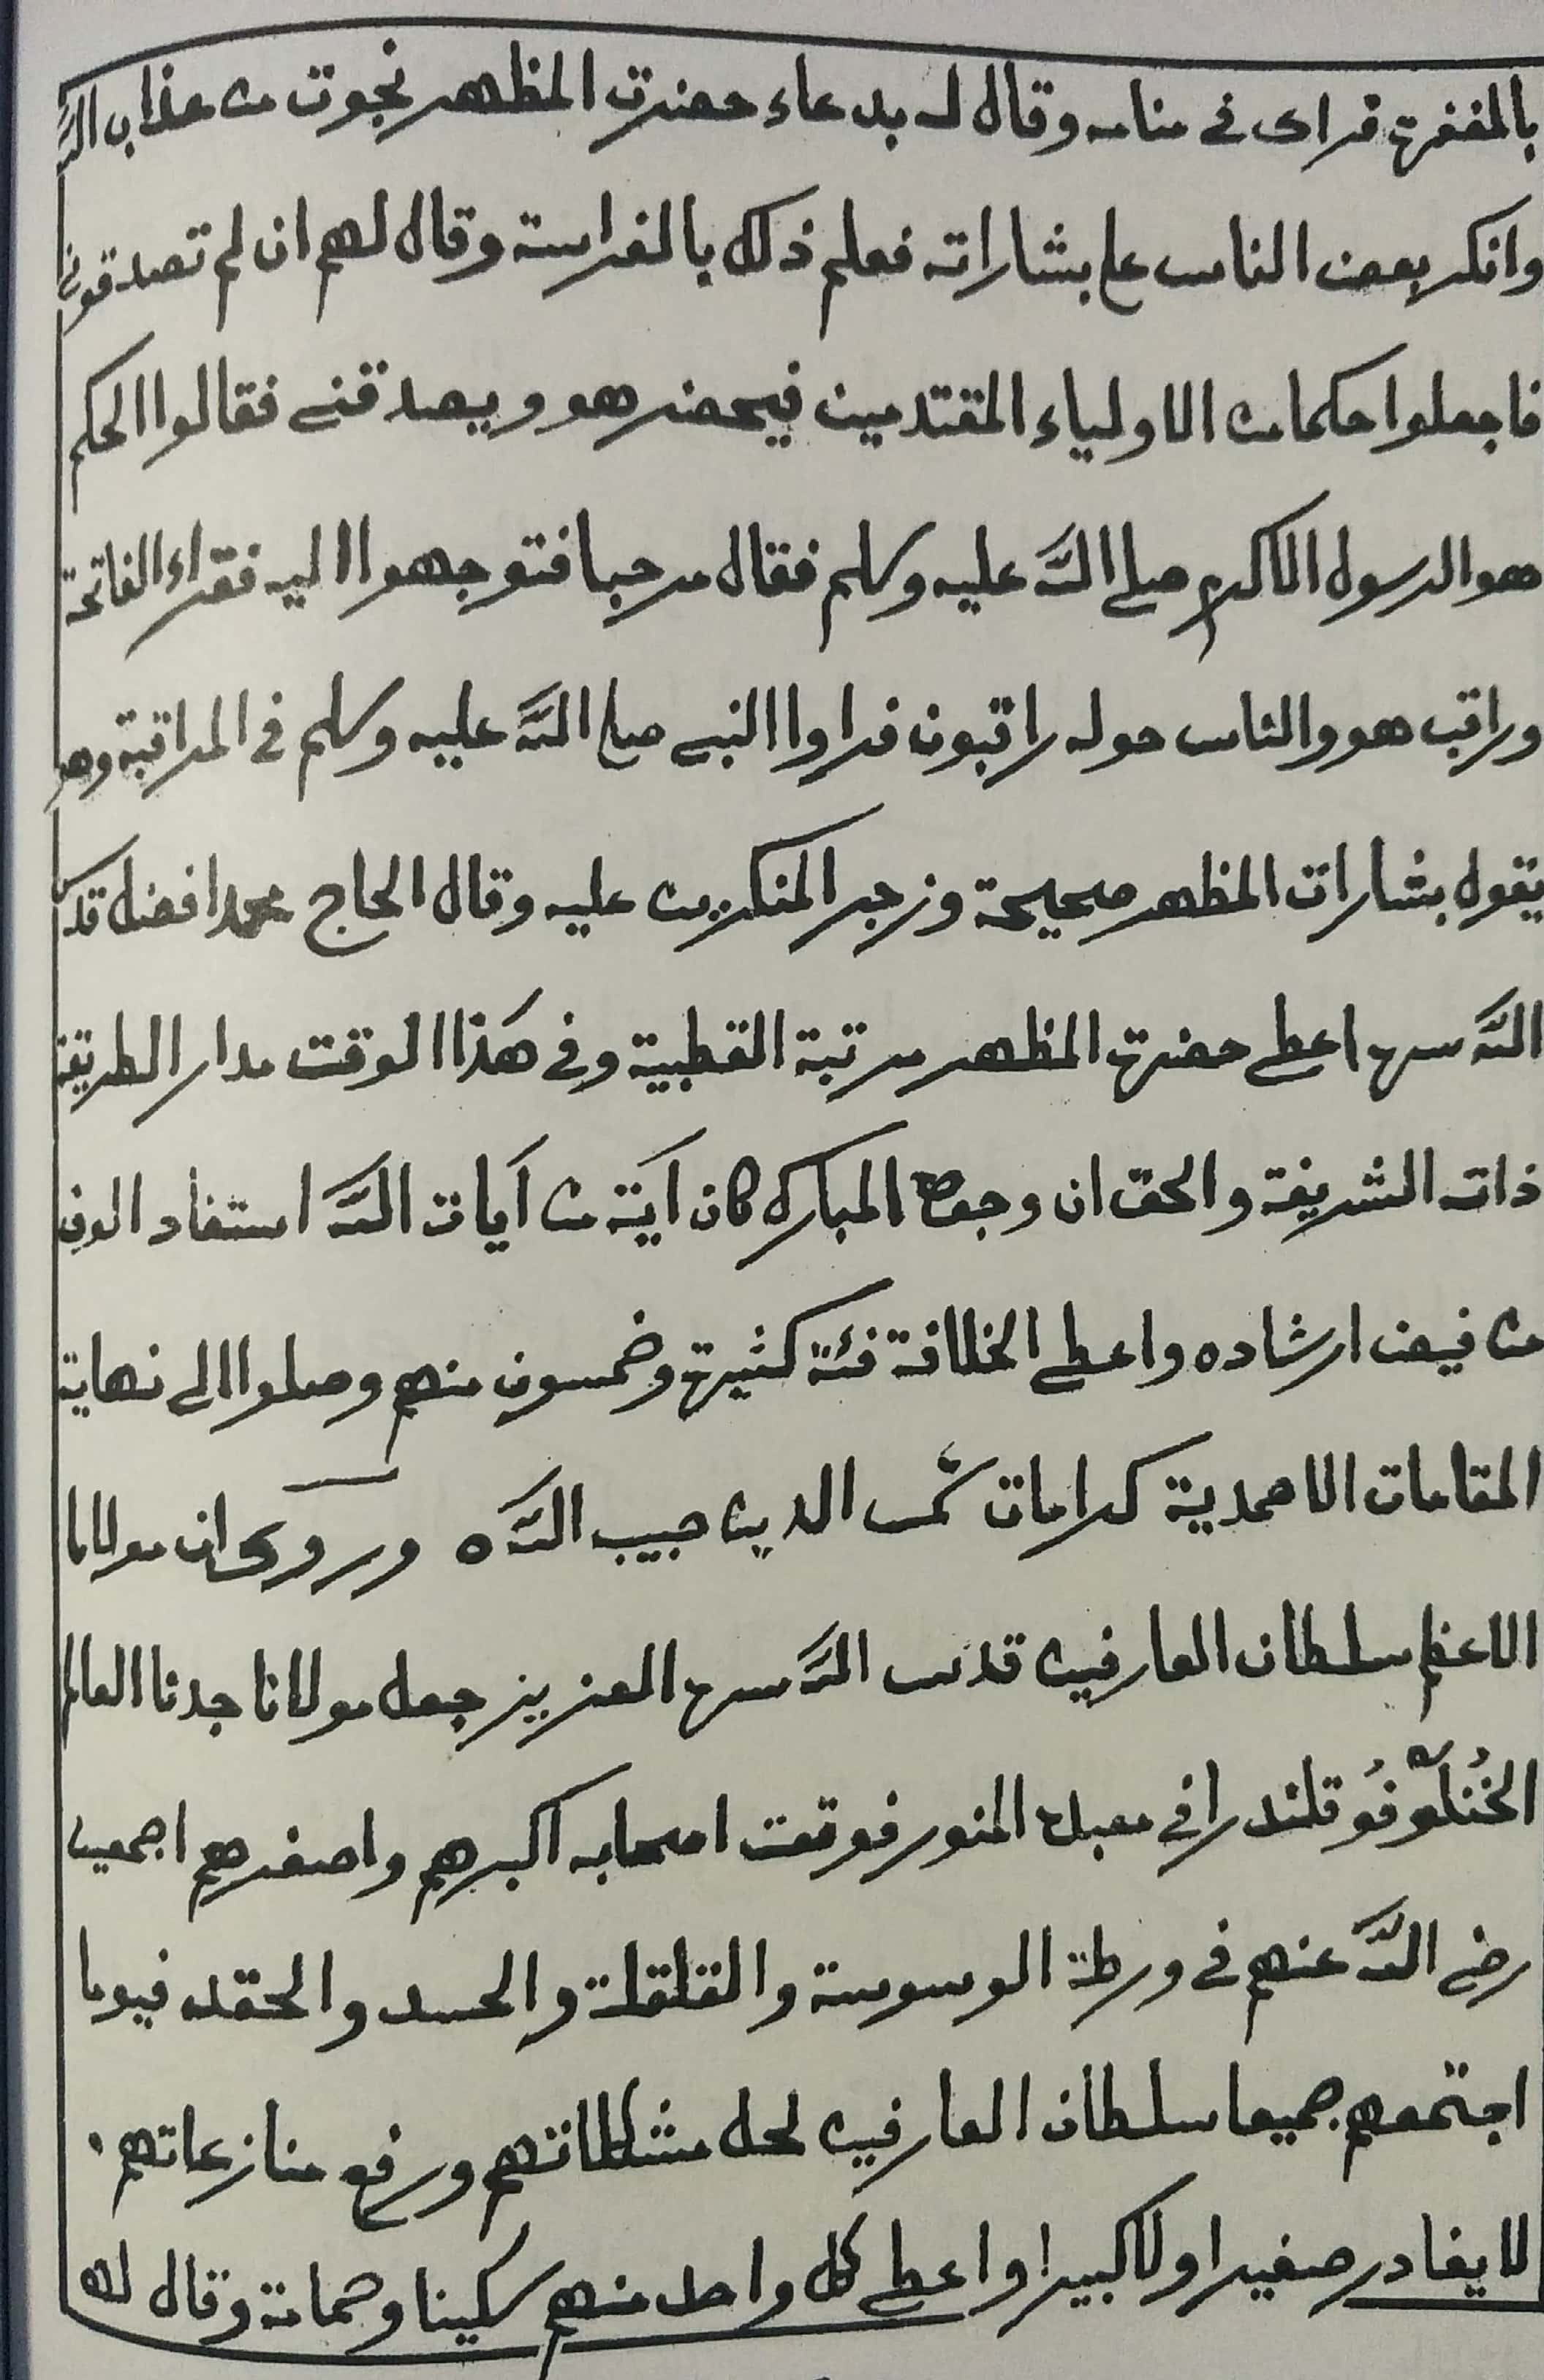 بالمغفرة فراى فى منامه وقال له بدعاء حضرت المظهر نجوت من عذاب الله
وانكر بعض الناس على بشاراته فعلم ذلك بالفراسة وقال لهم ان لم تصدقونى
فاجعلوا حكما من الاولياء المقتدمين فيحضر هو ويصدقنى فقالوا الحكم
هو الرسول الاكرم صلى الله عليه وسلم فقال مرحبا فتوجهوا اليه فقراء الفاتحة
وراقب هو والناس حوله راقبون فراوا النبى صلى الله عليه وسلم فى المراقبة وهو
يقول بشارات المظهر صحيحة وزجر المنكرين عليه وقال الحاج محمد افضل قدس
الله سره اعطى حضرة المظهر مرتبة القطبية وفى هذا الوقت مدار الطريقة
ذاته الشريفة والحق ان المبارك كان آية من آيات الله استفاد الوف
من فيض ارشاده واعطى الخلافة فئة كثيرة وخمسون منهم وصلوا الى نهاية
المقامات الاحمدية كرامات شمس الدين حبيب الله ه وروى ان مولانا
الاعظم سلطان العارفين قدس الله سره العزيز جعل مولانا جدنا العالم
قلندرا فى المنور فوقعت اصحابه اكبرهم واصغرهم اجمعين
رضى الله عنهم فى ورطة الوسوسة والقلقلة والحسد والحقد فيوما
اجتمعهم جميعا سلطان العارفين لحل مشكلاتهم ورفع منازعاتهم
لا يغادر صغيرا ولا كبيرا واعطى كل واحد منهم سكينا وحمامة وقال له